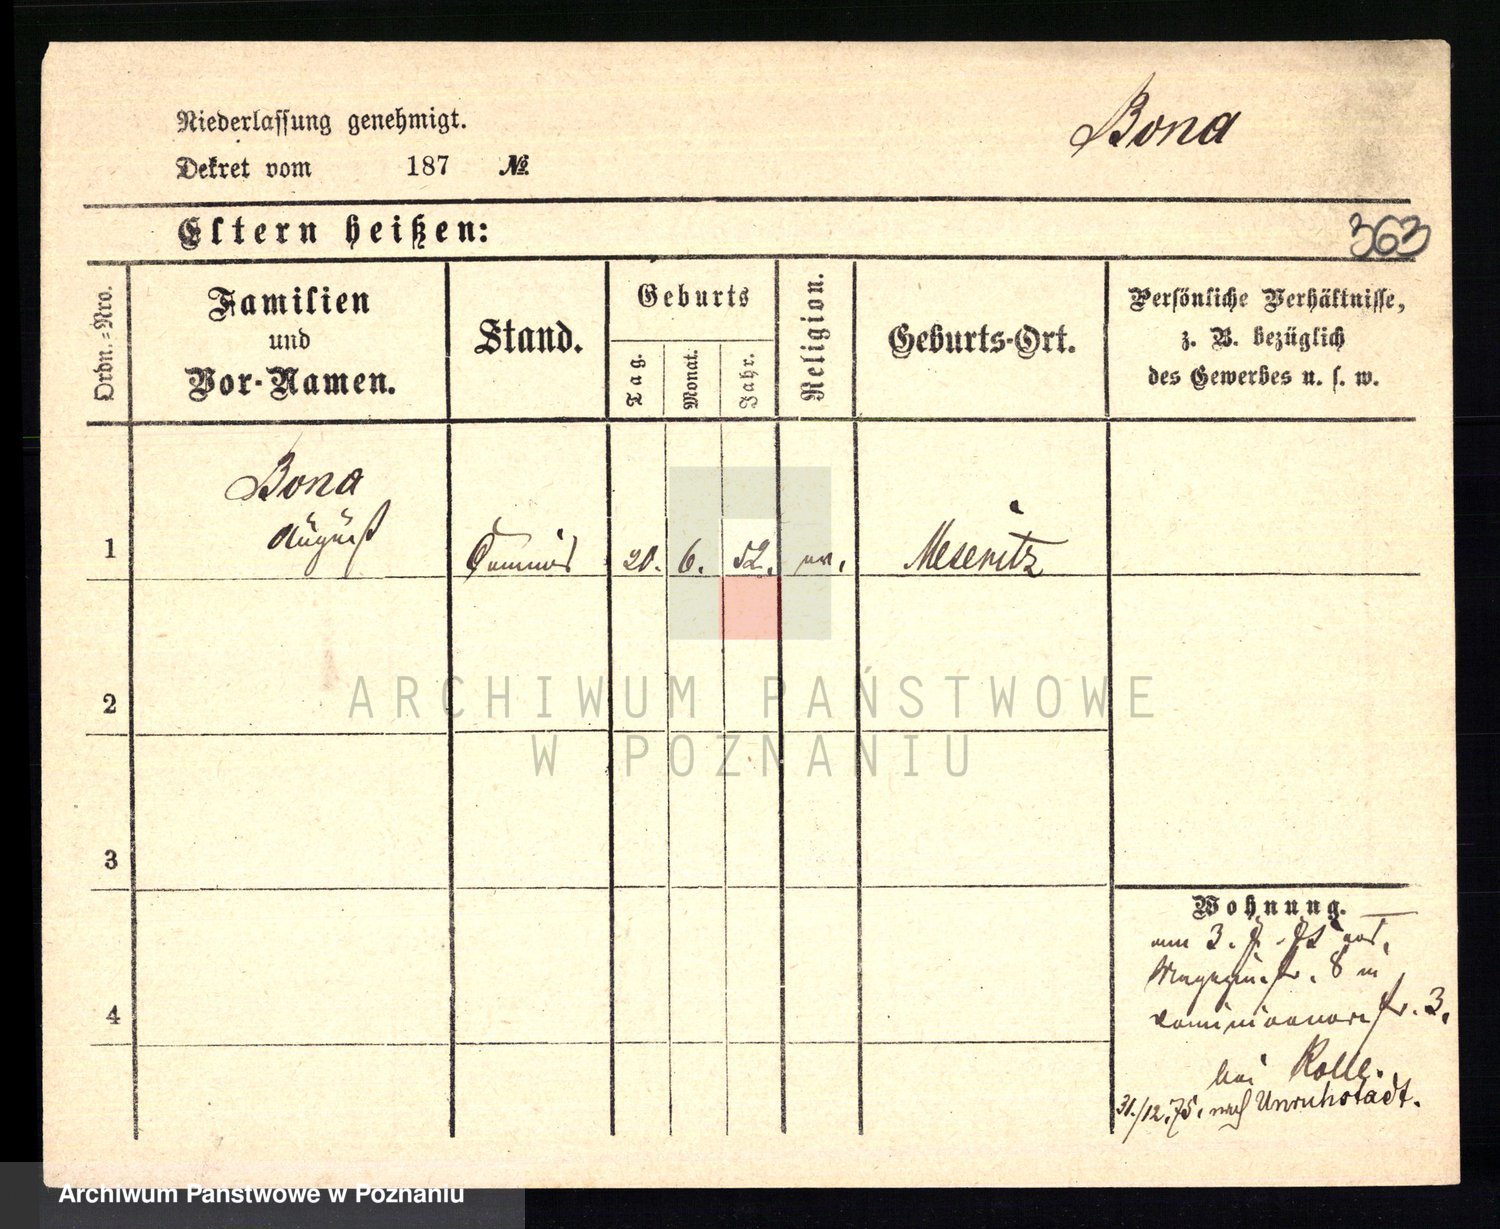 Niederlassung genehmigt.
Bona
Dekret vom 187 №
Eltern heißen:
363
Ordn.-Nro.
Familien
und
Vor-Namen.
Stand.
Geburts
Tag.
Monat.
Jahr.
Religion.
Geburts-Ort.
Persönliche Verhältnisse,
z. B. bezüglich
des Gewerbes u. s. w.
Bona
August
1
Commis
20.
6.
52.
ev.
Meseritz
2
ARCHIWUM PAŃSTWOWE
W POZNANIU
3
Wohnung.
3.
Magazinstr. 8 in
4
str. 3.
bei Rolle.
31./12.75. nach Unruhstadt.
Archiwum Państwowe w Poznaniu